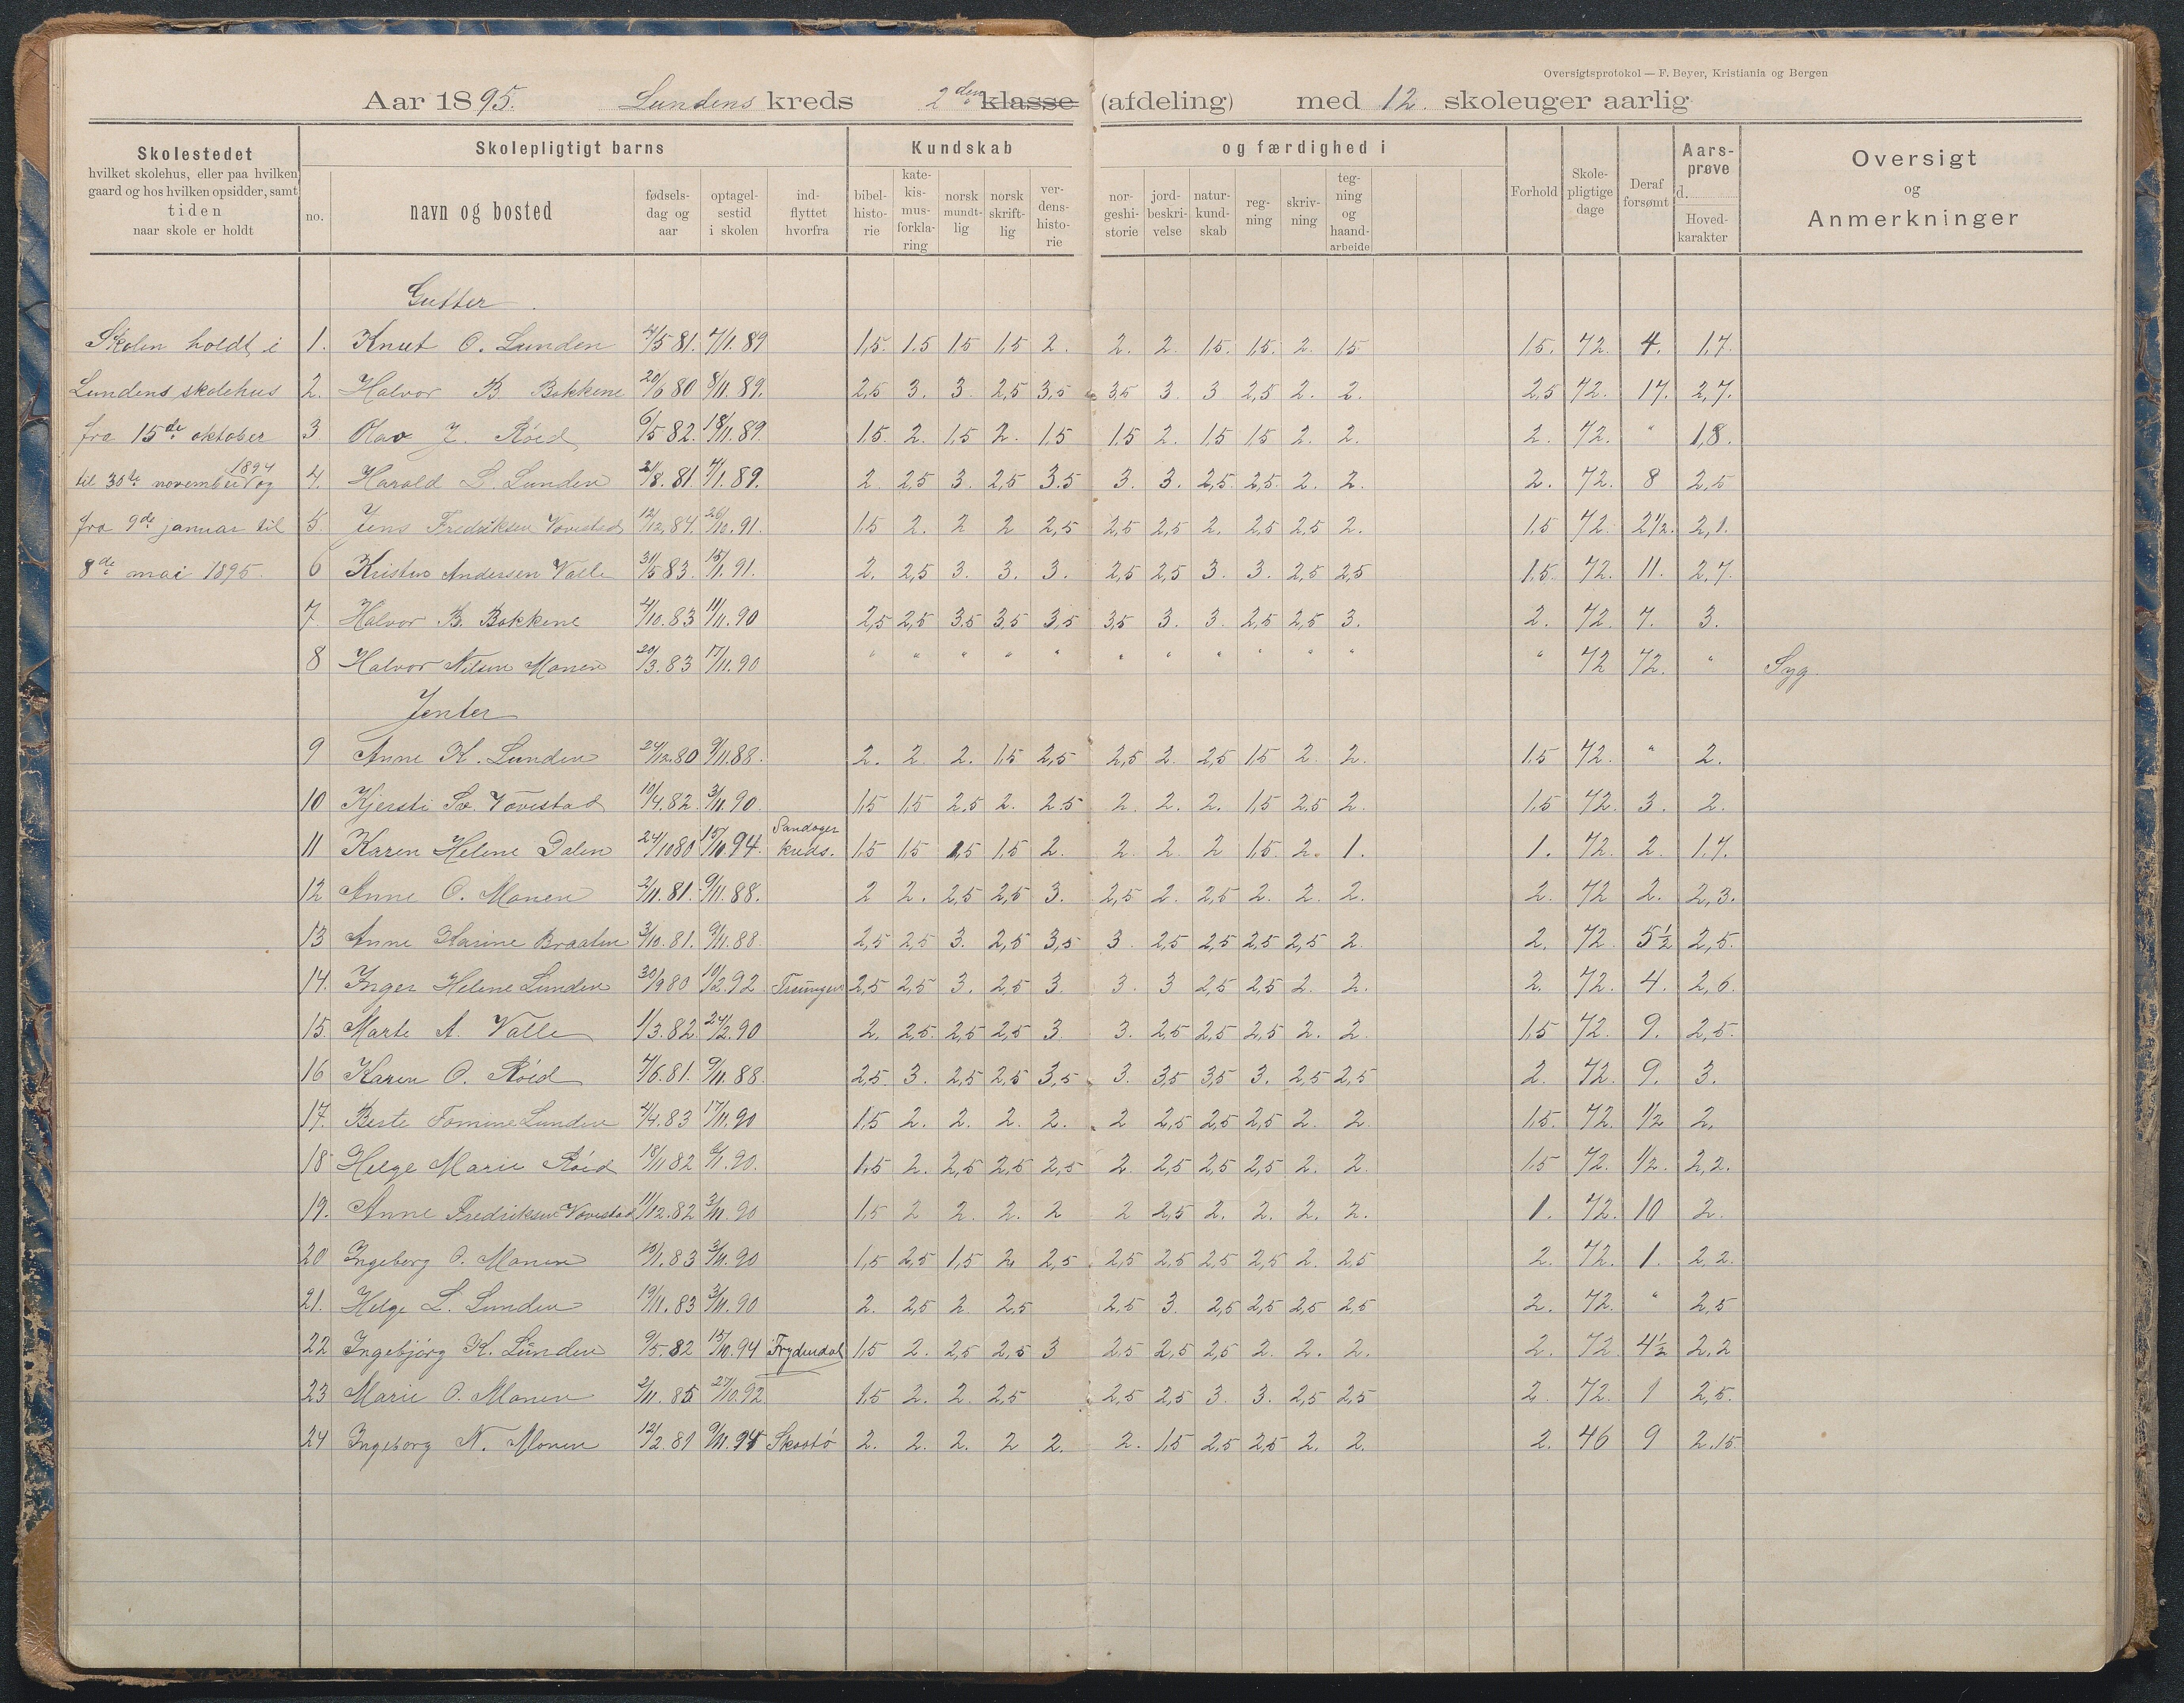 Oversigtsprotokol — F. Beyer, Kristiania og Bergen
Aar 1895. Lundens kreds 2den klasse (afdeling) med 12. skoleuger aarlig
Skolestedet
hvilket skolehus, eller paa hvilken
gaard og hos hvilken opsidder, samt
tiden
naar skole er holdt
Skolepligtigt barns
no. navn og bosted fødselsdag og aar optagelsestid i skolen indflyttet hvorfra
Kundskab og færdighed i
bibelhistorie katekismusforklaring norsk mundtlig norsk skriftlig verdenshistorie norgeshistorie jordbeskrivelse naturkundskab regning skrivning tegning og haandarbeide
Forhold Skolepligtige dage Deraf forsømt Aarsprøve d. Hovedkarakter
Oversigt og Anmerkninger
Gutter
Skolen holdt i 1. Knut O. Lunden 4/5 81. 7/1. 89 1,5. 1.5 1.5 1,5 2. 2. 2. 1,5. 1,5. 2. 1.5 1.5. 72. 4. 1.7.
Lundens skolehus 2. Halvor B. Bakkene 20/6 80 8/11. 89. 2,5 3. 3. 2,5 3,5 3,5 3. 3 2,5 2. 2. 2,5 72. 17. 2,7.
fra 15de oktober 3. Olav J. Röed 6/5 82. 18/11. 89. 1.5. 2. 1,5 2. 1.5 1.5 2. 1,5 1.5 2. 2. 2. 72. " 1,8.
til 30te november 1894 og 4. Harald L. Lunden 21/8. 81. 7/1. 89. 2. 2,5 3. 2,5 3.5 3. 3. 2,5. 2,5. 2. 2. 2. 72. 8 2,5
fra 9de januar til 5. Jens Fredriksen Vovestad 12/12. 84. 26/10. 91. 1.5 2. 2 2 2,5 2,5 2,5 2. 2,5 2,5 2. 1.5 72. 2 1/2. 2,1.
8de mai 1895. 6 Kristen Andersen Valle 31/5 83. 15/1. 91. 2. 2,5 3. 3. 3. 2,5 2,5 3. 3. 2,5 2,5 1,5. 72. 11. 2,7.
7. Halvor B. Bakkene 4/10. 83 11/11. 90 2,5 2,5 3.5 3,5 3,5 3,5 3. 3. 2,5 2,5 3. 2. 72. 7. 3.
8 Halvor Nilsen Monen 20/3. 83 17/11. 90 " " " " " " " " " " " " 72 72. " Syg.
Jenter
9 Anne K. Lunden 24/12. 80 9/11. 88. 2. 2. 2. 1.5 2,5 2,5 2. 2,5 1.5 2. 2. 1.5 72. " 2.
10 Kjersti Sv. Vovestad 10/4. 82. 3/11. 90. 1.5 1.5 2.5 2. 2.5 2. 2. 2. 1.5 2,5 2. 1.5. 72. 3. 2.
11 Karen Helene Dalen 24/10 80 15/10. 94. Sandøger kreds. 1.5 1.5 1,5 1,5 2. 2. 2. 2 1.5. 2. 1. 1. 72. 2. 1.7.
12 Anne O. Monen 2/11. 81. 9/11. 88. 2 2. 2,5 2,5 3. 2,5 2. 2,5 2. 2. 2. 2. 72 2. 2,3.
13 Anne Karine Braaten 3/10. 81. 9/11. 88. 2,5 2,5 3. 2,5 3,5 3. 2,5 2,5 2,5 2,5 2. 2. 72. 5 1/2 2,5.
14. Inger Helene Lunden 30/9 80 10/2. 92 Treungen 2,5 2,5 3. 2,5 3. 3. 3 2,5 2,5 2. 2. 2. 72. 4. 2,6.
15. Marte A. Valle 1/3. 82. 24/2. 90 2. 2,5. 2,5 2,5 3. 3. 2,5 2,5 2,5 2. 2. 1.5 72. 9. 2,5.
16 Karen O. Röed 7/6. 81. 9/11. 88. 2,5. 3. 2,5 2,5 3,5 3. 3,5 3,5 3. 2,5 2,5 2. 72. 9. 3.
17. Berte Tomine Lunden 4/4. 83 17/11. 90 1.5 2. 2. 2. 2. 2 2,5 2,5 2,5 2. 2 1.5. 72. 1/2 2.
18 Helge Marie Röed 18/11 82 9/1. 90. 1.5 2. 2,5 2,5 2,5 2. 2,5 2,5 2,5 2. 2. 1.5 72. 1/2. 2,2.
19. Anne Fredriksen Vovestad 11/12. 82 3/11. 90 1,5 2 2. 2. 2 2 2,5 2. 2. 2. 2. 1. 72. 10 2.
20 Ingeborg O. Monen 19/1. 83 3/11. 90 1,5 2,5 1,5 2 2,5 2,5 2,5 2,5 2,5 2. 2,5 2. 72. 1. 2,2.
21. Helge L. Lunden 19/11. 83 3/11. 90 2. 2,5 2. 2,5 2,5 3. 2,5 2,5 2,5 2,5 2. 72. " 2,5
22 Ingebjørg K. Lunden 9/5. 82 15/10. 94 Frydendal 1.5 2. 2,5 2,5 3 2,5 2,5 2,5 2. 2. 2. 2. 72 4 1/2 2,2
23 Marie O. Monen 2/11. 85 27/10. 92 1.5 2. 2. 2,5 2,5 2,5 3. 3. 2,5 2,5 2. 72. 1 2,5.
24 Ingeborg N. Monen 12/2. 81 9/11. 94 Skaatö 2. 2. 2. 2 2. 2. 1.5 2,5 2,5 2. 2. 2. 46 9 2.15.